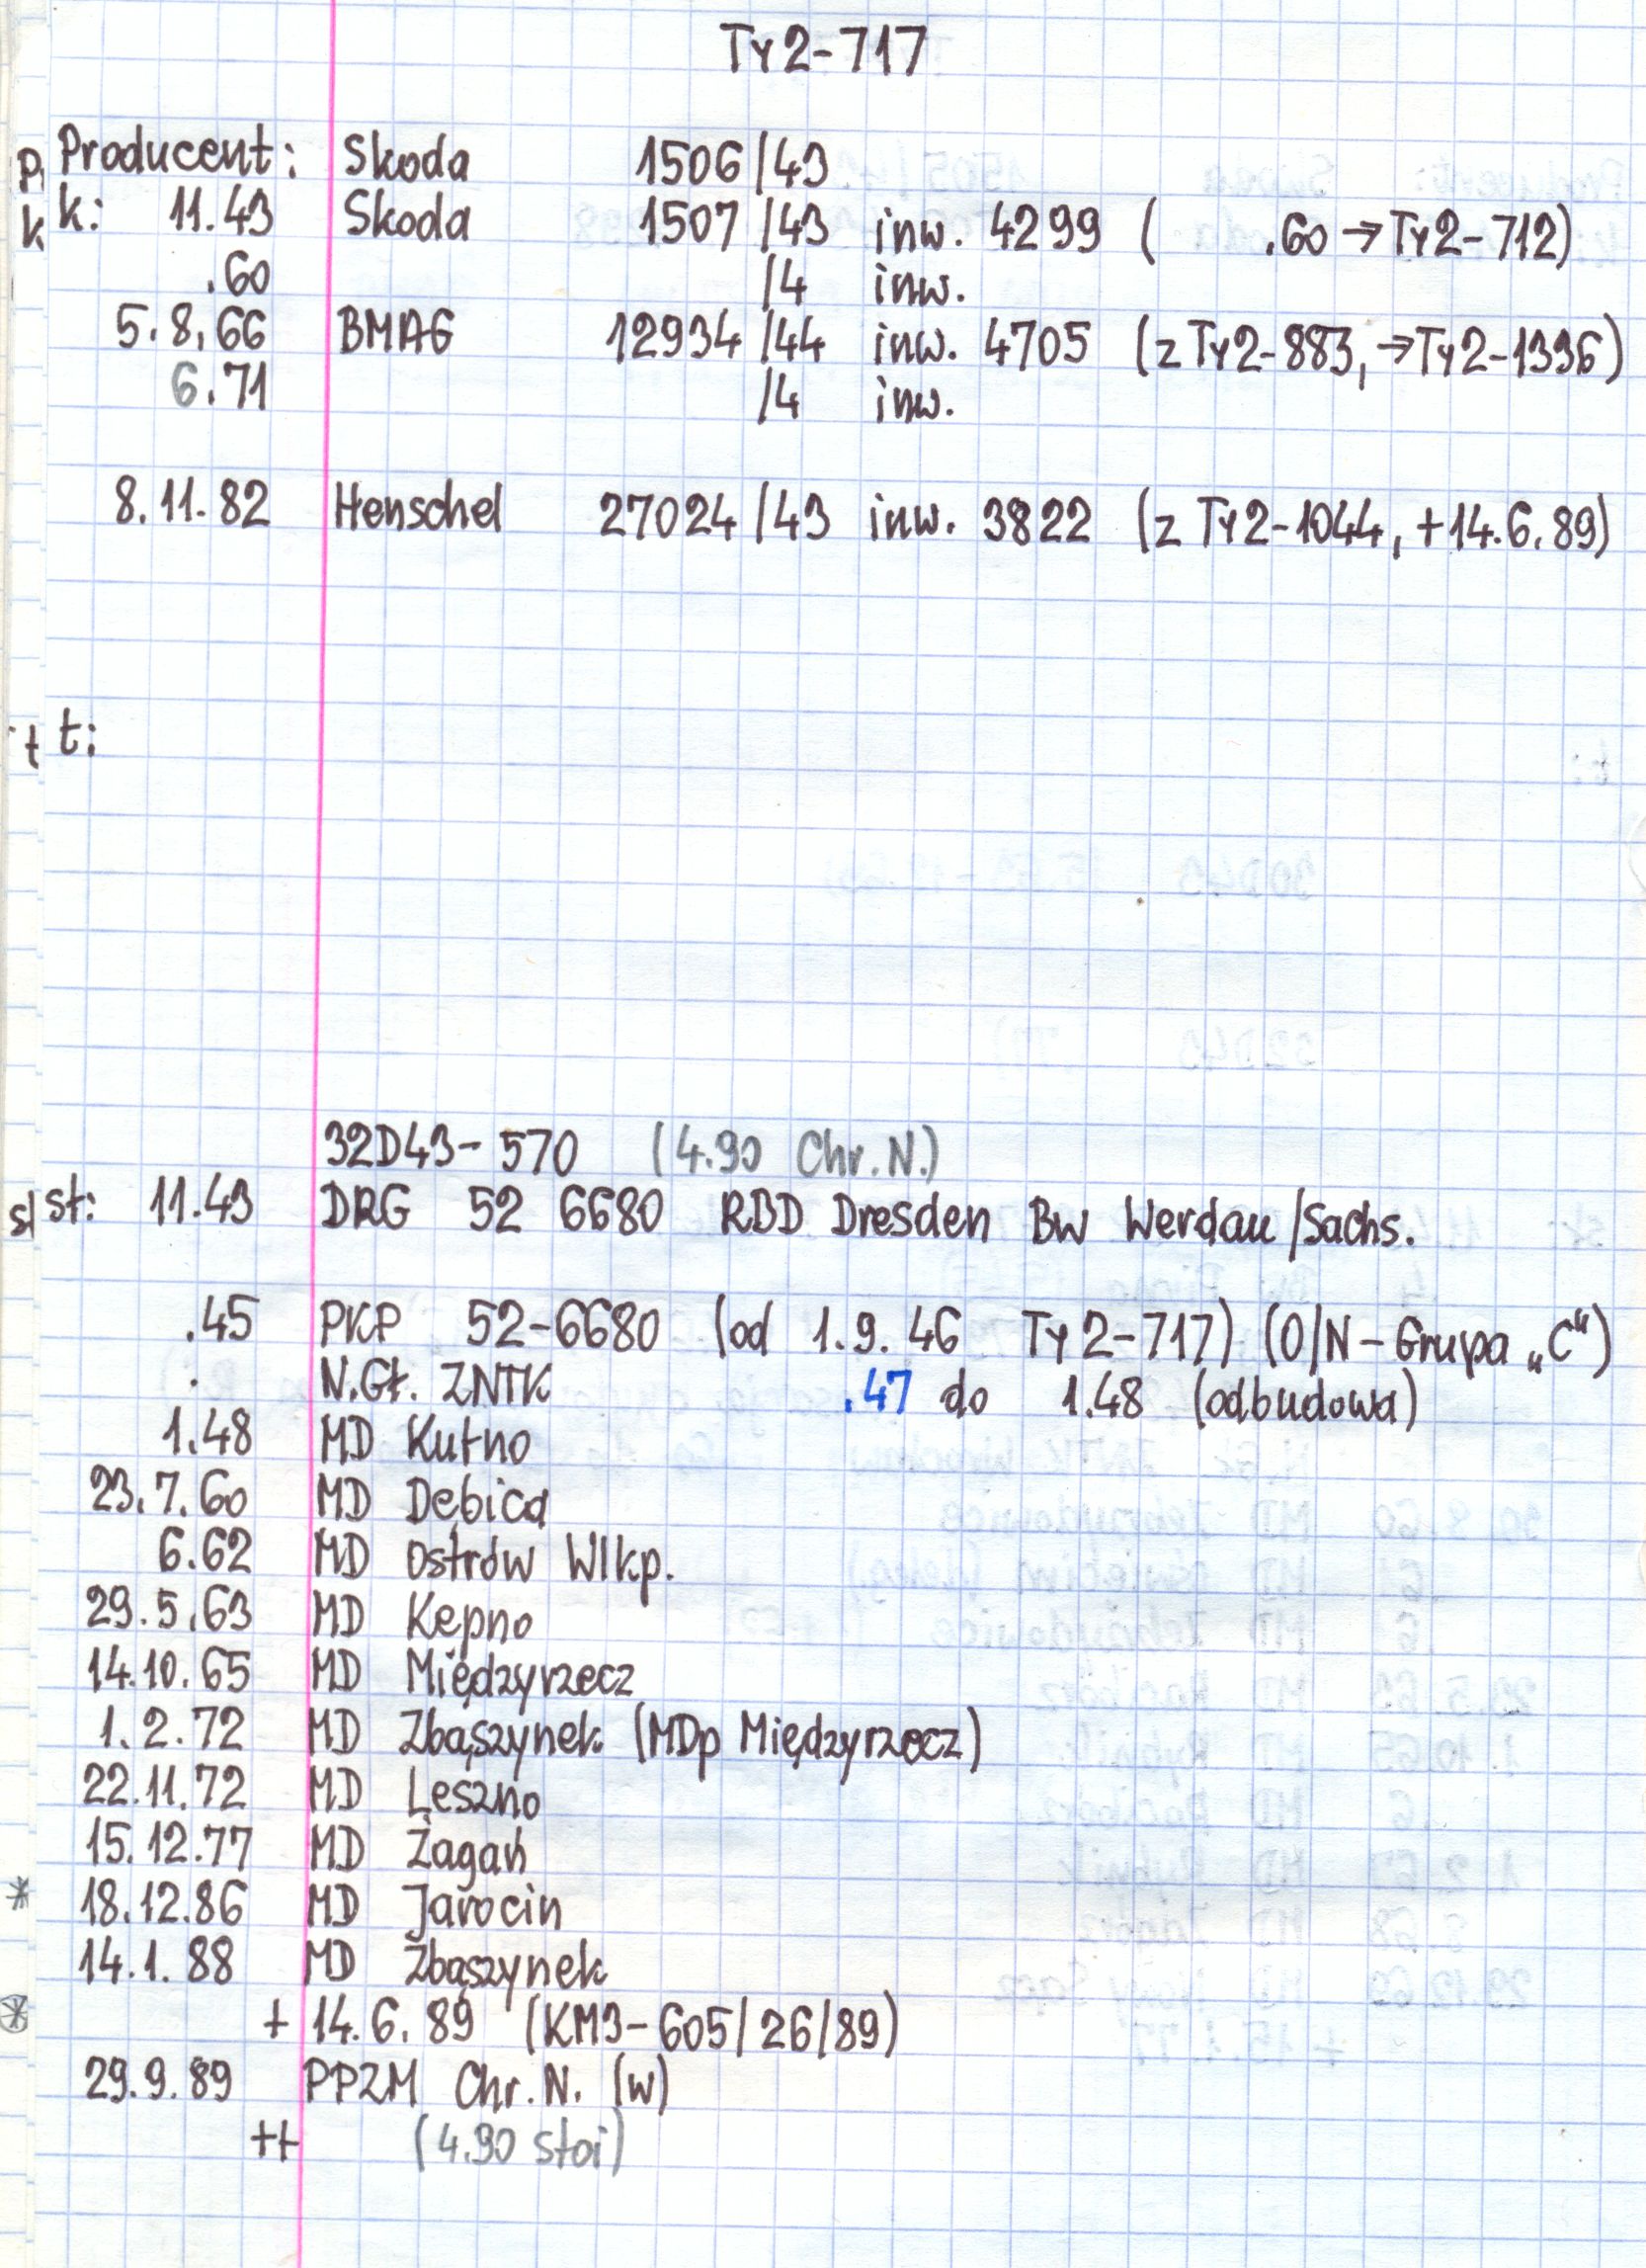 Ty2-717
Producent: Skoda 1506/43
k: 11.43 Skoda 1507/43 inw. 4299 ( .60 → Ty2-712)
.60 /4 inw.
5.8.66 BMAG 12934/44 inw. 4705 (z Ty2-883, → Ty2-1336)
6.71 /4 inw.
8.11.82 Henschel 27024/43 inw. 3822 (z Ty2-1044, +14.6.89)
t:
32D43-570 (4.90 Chr.N.)
st: 11.43 DRG 52 6680 RBD Dresden Bw Werdau/Sachs.
.45 PKP 52-6680 (od 1.9.46 Ty2-717) (O/N-Grupa „C")
. N.Gł. ZNTK .47 do 1.48 (odbudowa)
1.48 MD Kutno
23.7.60 MD Dębica
6.62 MD Ostrów Wlkp.
29.5.63 MD Kępno
14.10.65 MD Międzyrzecz
1.2.72 MD Zbąszynek (MDp Międzyrzecz)
22.11.72 MD Leszno
15.12.77 MD Żagań
* 18.12.86 MD Jarocin
14.1.88 MD Zbąszynek
+ 14.6.89 (KM3-605/26/89)
29.9.89 PPZM Chr.N. (w)
++ (4.90 stoi)